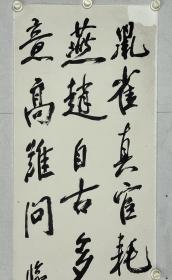 鼠雀真官耗
燕趙自古多
意高難問